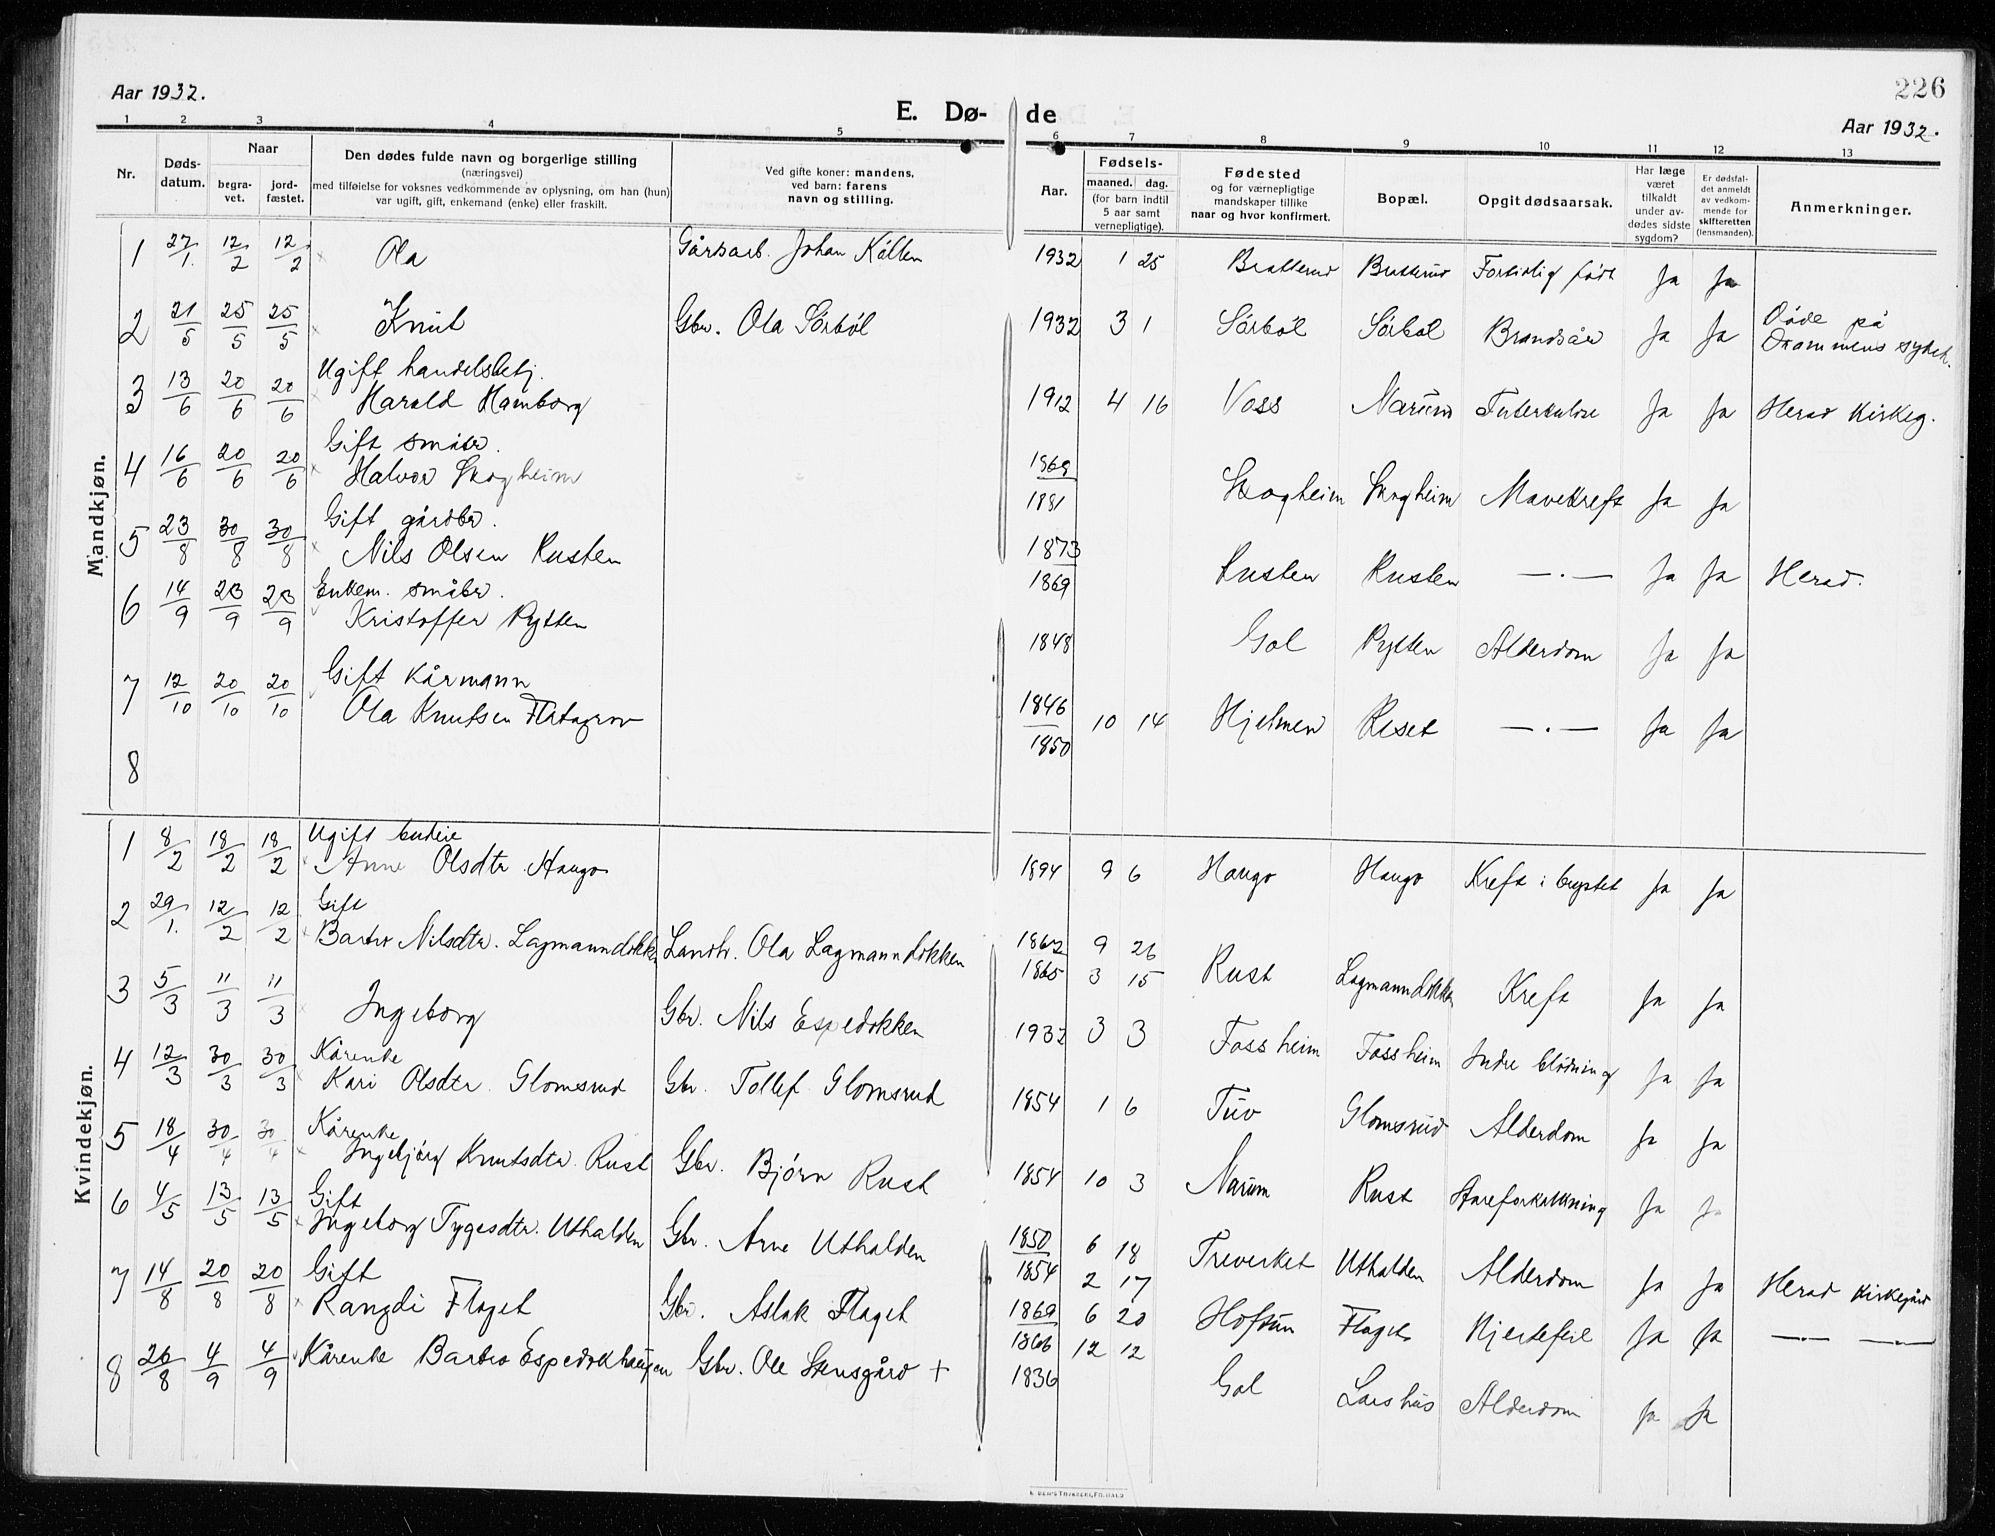 Aar 1932.
E. Dø- de
226
Aar 1932.
1 2 3 4 5 6 7 8 9 10 11 12 13
Nr.
Døds-
datum.
Naar
begra-
vet.
jord-
fæstet.
Den dødes fulde navn og borgerlige stilling
(næringsvei)
med tilføielse for voksnes vedkommende av oplysning, om han (hun)
var ugift, gift, enkemand (enke) eller fraskilt.
Ved gifte koner: mandens,
ved barn: farens
navn og stilling.
Aar.
Fødsels-
maaned. dag.
(for barn indtil
5 aar samt
vernepligtige).
Fødested
og for værnepligtige
mandskaper tillike
naar og hvor konfirmert.
Bopæl.
Opgit dødsaarsak.
Har læge
været
tilkaldt
under av-
dødes sidste
sygdom?
Er dødsfal-
det anmeldt
av vedkom-
mende for
skifteretten
(lensmanden).
Anmerkninger.
Mandkjøn.
1 27/1. 12/2 12/2 Ola Gårdsarb. Johan Kolken 1932 1 25 Bratterud Bratterud Fortidlig født Ja Ja
2 21/5 25/5 25/5 Knut Gbr. Ola Sörböl 1932 3 1 Sörböl Sörböl Brandsår Ja Ja Døde på
Drammens sykeh.
Ugift handelsbetj.
3 13/6 20/6 20/6 Harald Hamborg 1912 4 16 Voss Narum Tuberkulose Ja Ja Herad Kirkeg.
Gift småbr.
4 16/6 20/6 20/6 Halvor Skogheim 1869 Skogheim Skogheim Mavekreft Ja Ja
1881
Gift gårdbr.
5 23/8 30/8 30/8 Nils Olsen Rusten 1873 Rusten Rusten —.— Ja Ja Herad.
1869
Enkem. småbr.
6 14/9 23/9 23/9 Kristoffer Pytten 1848 Gol Pytten Alderdom Ja Ja
Gift Kårmann
7 12/10 20/10 20/10 Ola Knutsen Flatagrov 1846 10 14 Hjelmen Reset —.— Ja Ja
1850
8
Kvindekjøn.
Ugift budeie
1 8/2 18/2 18/2 Anne Olsdtr. Haugo 1894 9 6 Haugo Haugo Kreft i brystet Ja Ja
Gift
2 29/1. 12/2 12/2 Barbro Nilsdtr. Lagmanndokken Landh. Ola Lagmanndokken 1862 9 26 Rust Lagmanndokken Kreft Ja Ja
1865 3 15
3 5/3 11/3 11/3 Ingeborg Gbr. Nils Espedokken 1932 3 3 Fossheim Fossheim Indre blödning Ja Ja
Kårenke
4 12/3 30/3 30/3 Kari Olsdtr. Glomsrud Gbr. Tollef Glomsrud 1854 1 6 Tuv Glomsrud Alderdom Ja Ja
Kårenke
5 18/4 30/4 30/4 Ingebjørg Knutsdtr. Rust Gbr. Bjørn Rust 1854 10 3 Narum Rust Åreforkalkning Ja Ja
Gift
6 4/5 13/5 13/5 Ingeborg Tygesdtr. Uthalden Gbr. Arne Uthalden 1850 6 18 Treverket Uthalden Alderdom Ja Ja Herad Kirkegård
1854 2 17
Gift
7 14/8 20/8 20/8 Rangdi Flaget Gbr. Aslak Flaget 1869 6 20 Hofsun Flaget Hjertefeil Ja Ja —.—
1866 12 12
8 26/8 4/9 4/9 Kårenke Barbro Espedokhaugen Gbr. Ole Stensgård + 1836 Gol Larshus Alderdom Ja Ja